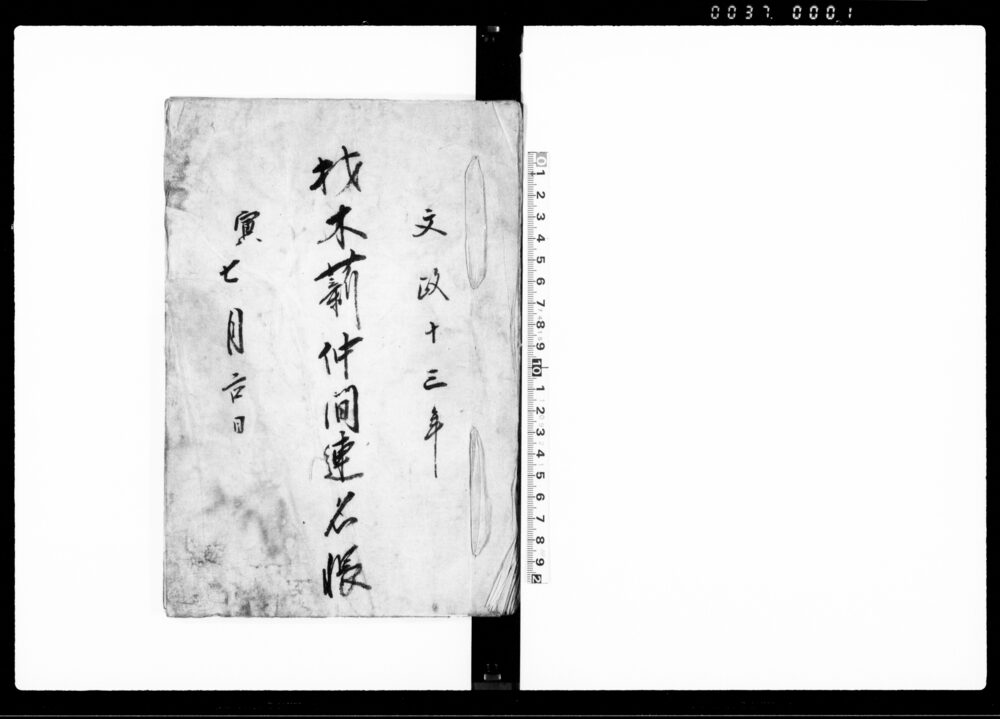 0037 0001
文政十三年
材木薪仲間連名帳
寅七月六日
0 1 2 3 4 5 6 7 8 9 10 1 2 3 4 5 6 7 8 9 2